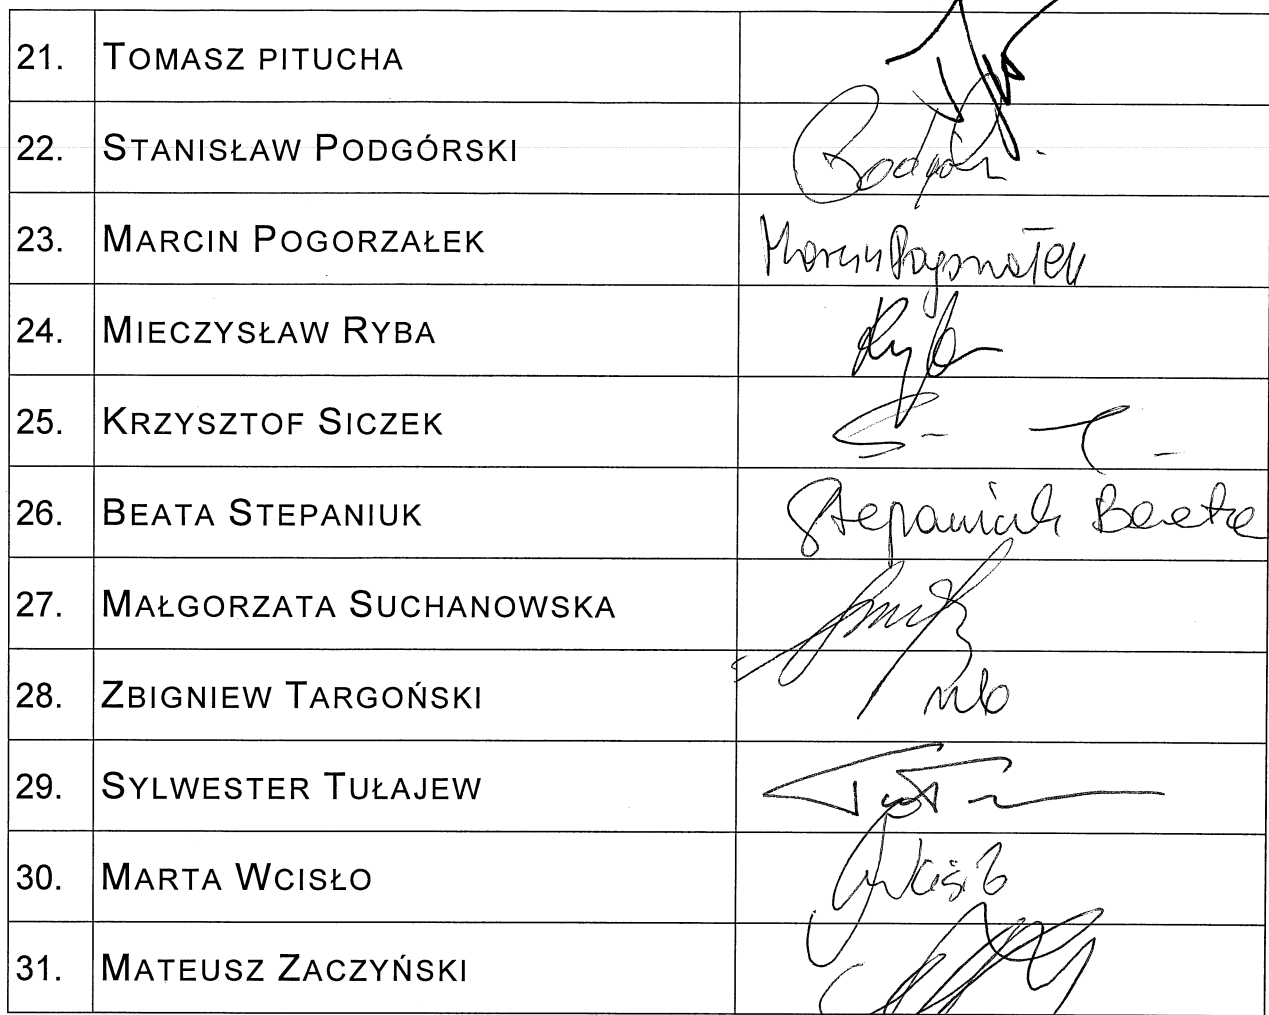 21. TOMASZ PITUCHA
22. STANISŁAW PODGÓRSKI
23. MARCIN POGORZAŁEK Marcin Pogorzałek
24. MIECZYSŁAW RYBA Ryba
25. KRZYSZTOF SICZEK
26. BEATA STEPANIUK Stepaniuk Beata
27. MAŁGORZATA SUCHANOWSKA
28. ZBIGNIEW TARGOŃSKI nb
29. SYLWESTER TUŁAJEW
30. MARTA WCISŁO
31. MATEUSZ ZACZYŃSKI